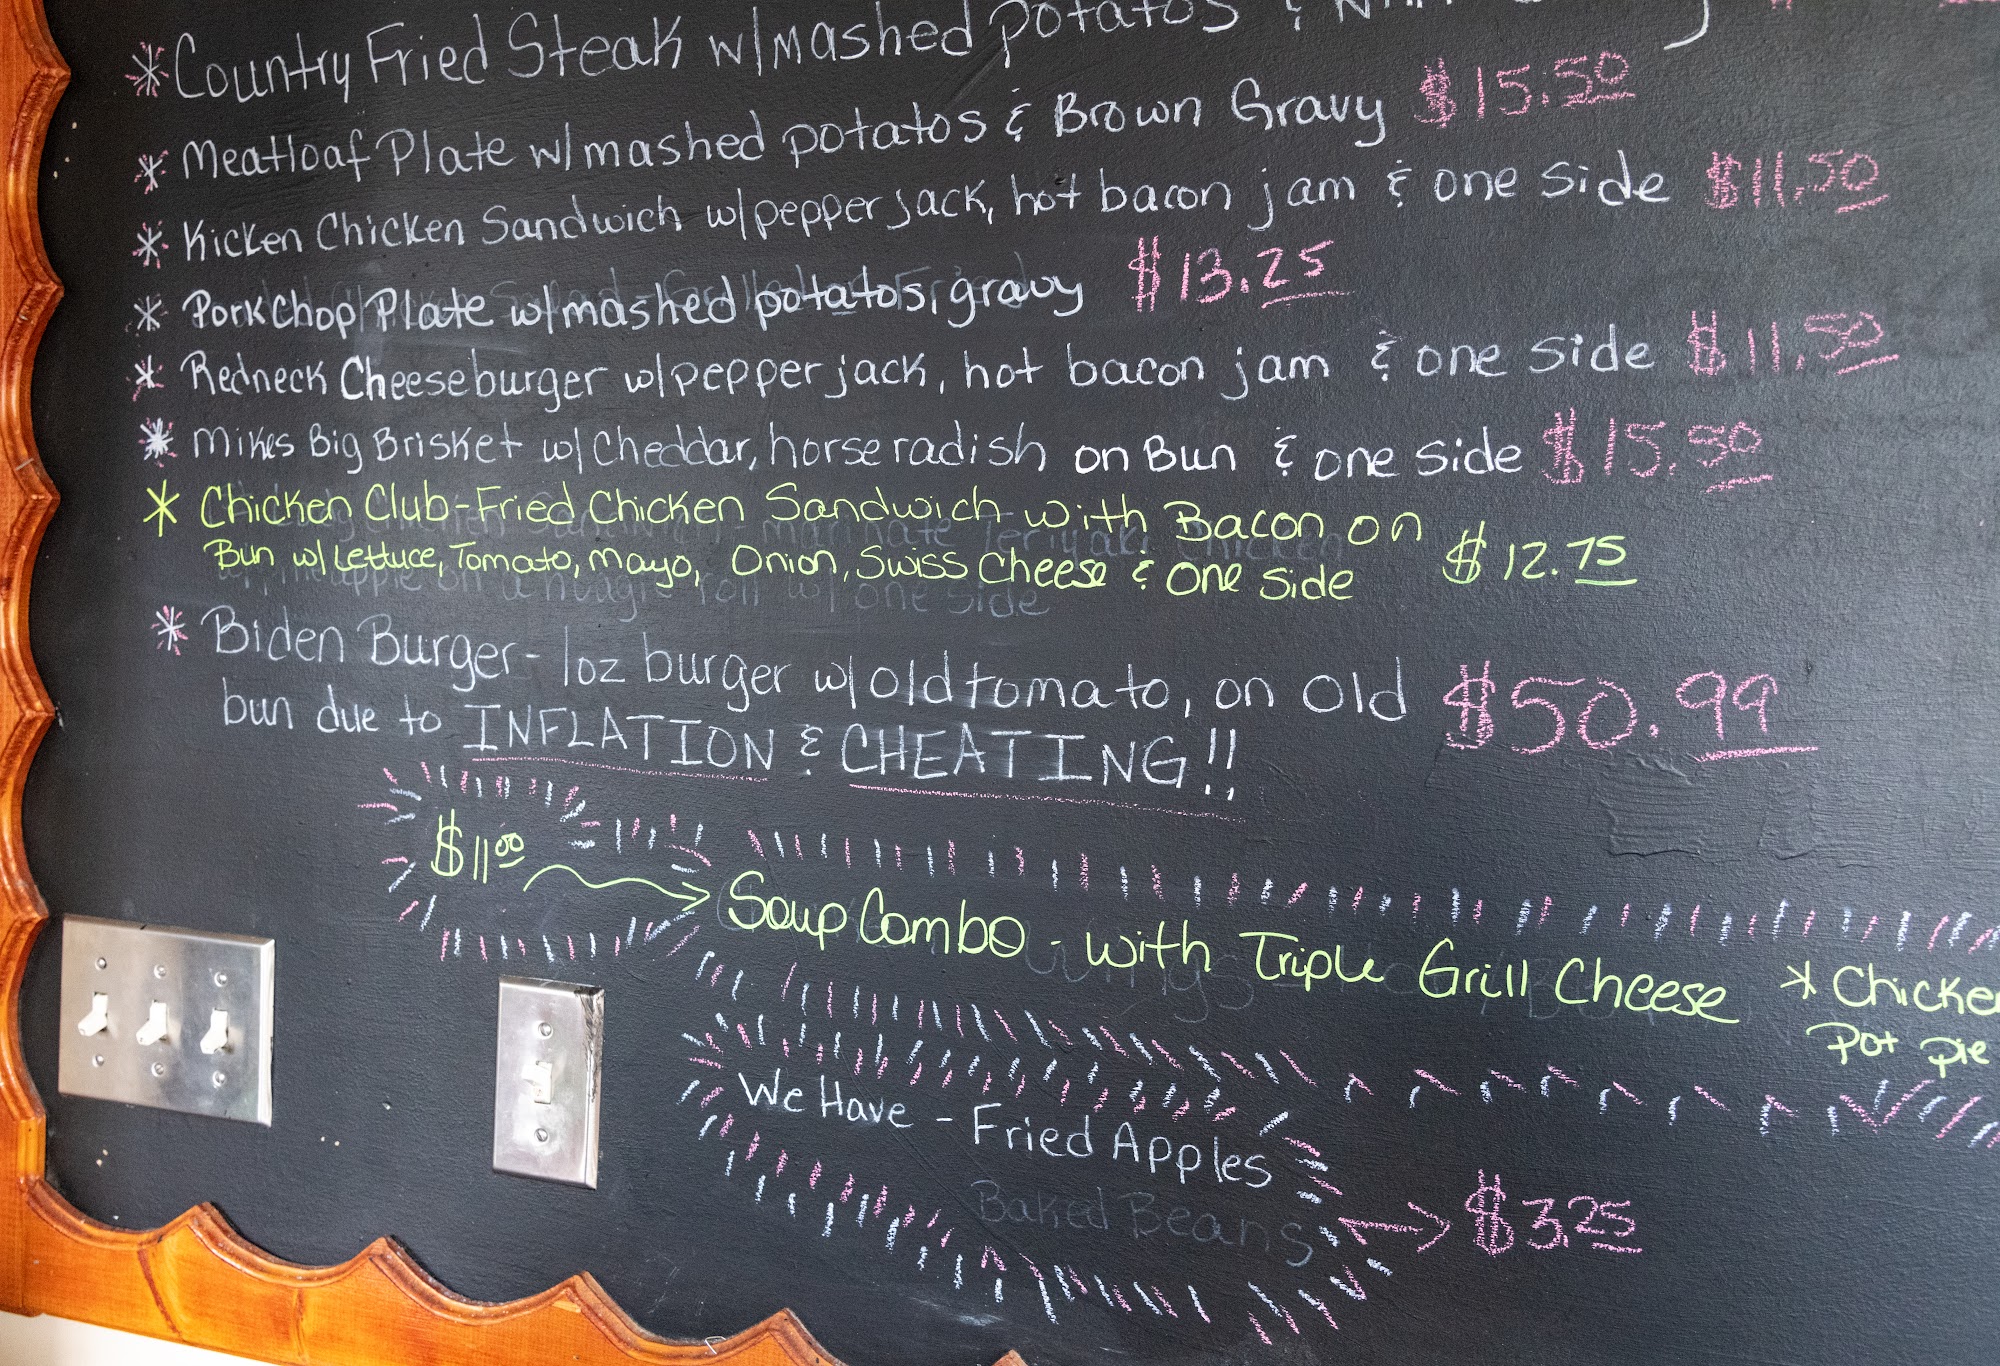 * Country Fried Steak w/mashed potatos &
* Meatloaf Plate w/mashed potatos & Brown Gravy $15.50
* Kicken Chicken Sandwich w/pepper jack, hot bacon jam & one side $11.50
* Pork Chop Plate w/mashed potatos, gravy $13.25
* Redneck Cheeseburger w/pepper jack, hot bacon jam & one side $11.50
* Mikes Big Brisket w/ Cheddar, horseradish on Bun & one side $15.50
* Chicken Club-Fried Chicken Sandwich with Bacon on
Bun w/ Lettuce, Tomato, Mayo, Onion, Swiss Cheese & One Side $12.75
* Biden Burger- 1oz burger w/ old tomato, on old
bun due to INFLATION & CHEATING!! $50.99
$11.00 → Soup Combo - with Triple Grill Cheese * Chicken
Pot Pie
We Have - Fried Apples
Baked Beans → $3.25